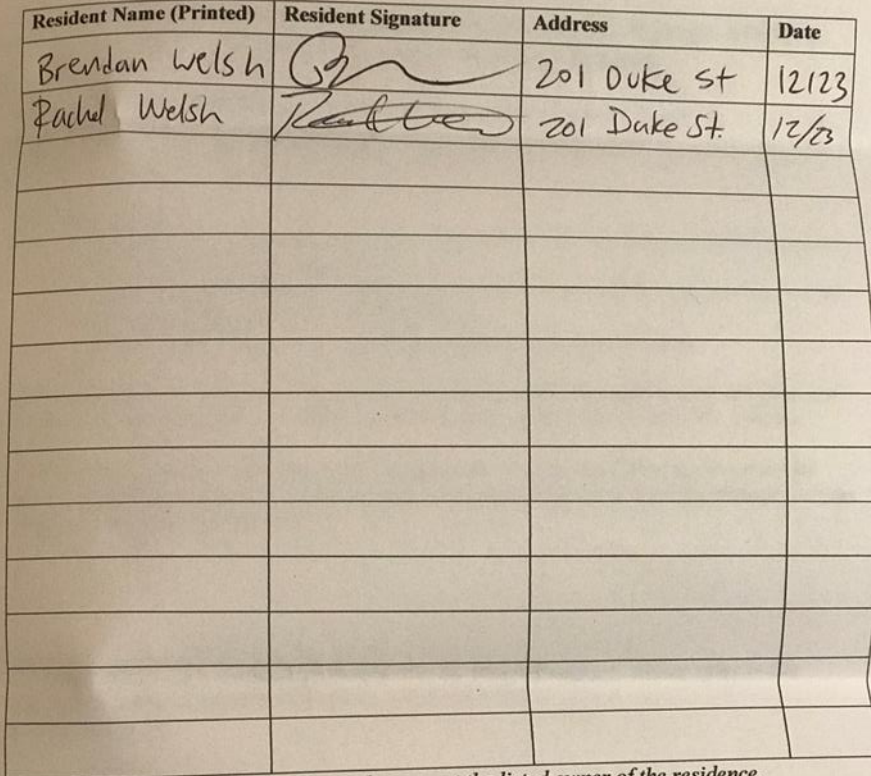 Resident Name (Printed) Resident Signature Address Date
Brendan Welsh 201 Duke St 12/23
Rachel Welsh 201 Duke St. 12/23
listed owner of the residence